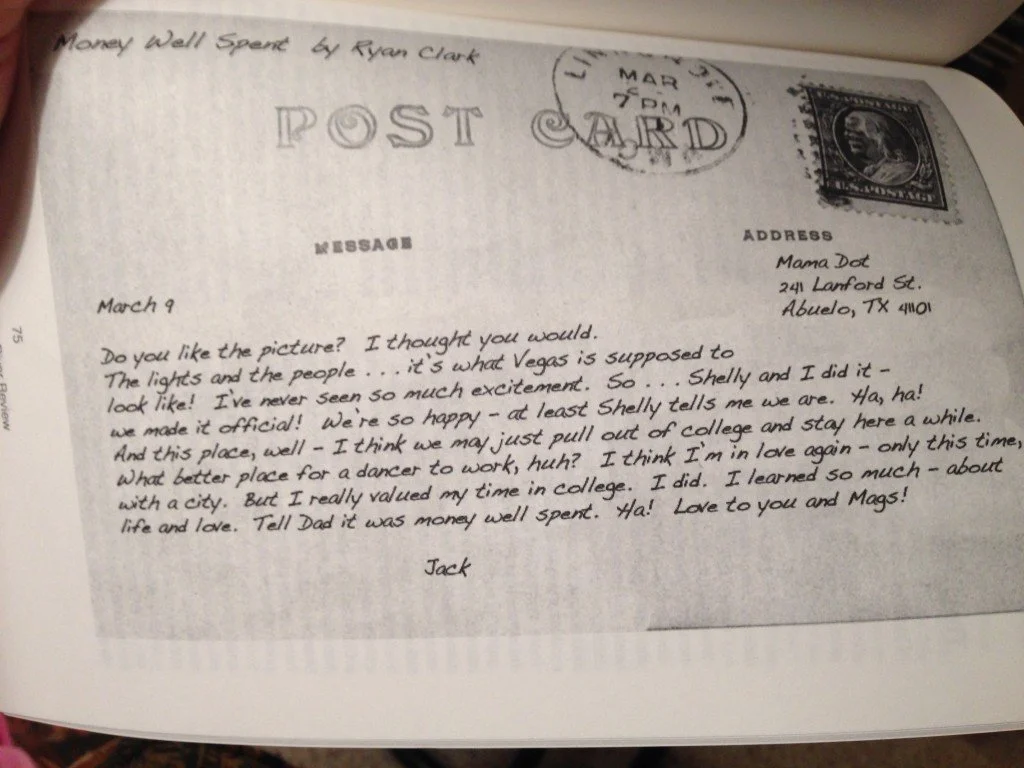 Money Well Spent by Ryan Clark
MAR
7 PM
POST CARD
U.S. POSTAGE
U.S. POSTAGE
MESSAGE
ADDRESS
Mama Dot
241 Lanford St.
Abuelo, TX 41101
March 9
Do you like the picture? I thought you would.
The lights and the people . . . it's what Vegas is supposed to
look like! I've never seen so much excitement. So . . . Shelly and I did it –
we made it official! We're so happy – at least Shelly tells me we are. Ha, ha!
And this place, well – I think we may just pull out of college and stay here a while.
What better place for a dancer to work, huh? I think I'm in love again – only this time,
with a city. But I really valued my time in college. I did. I learned so much – about
life and love. Tell Dad it was money well spent. Ha! Love to you and Mags!
Jack
75
Review